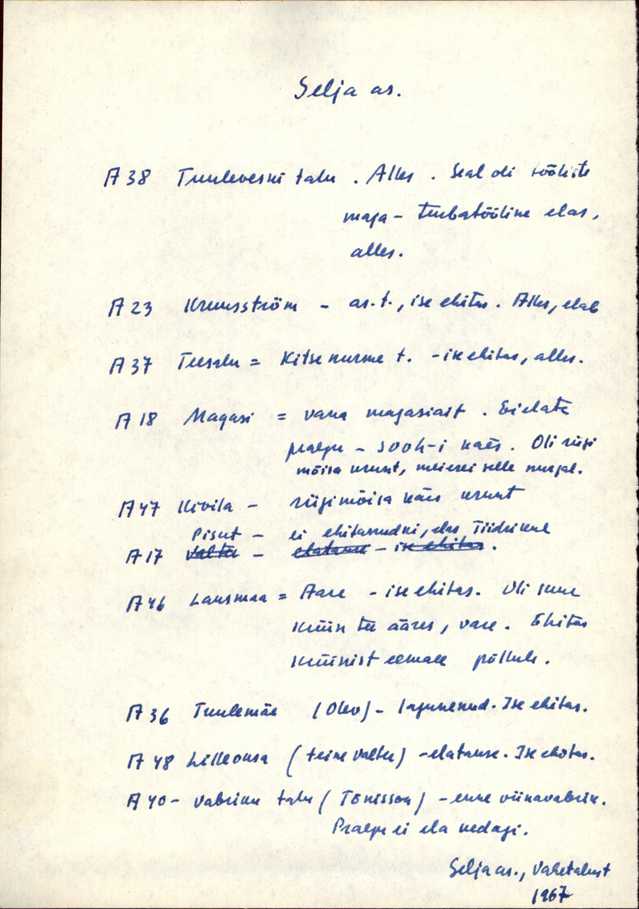 Selja as.
A 38 Tuuleveski talu. Alles. Seal oli tööliste
maja - turbatööline elas,
alles.
A 23 Kruusström - as.t., ise ehitas. Alles, elab
A 37 Teesalu = Kitsenurme t. - ise ehitas, alles.
A 18 Magasi = vana magasiait. Ei elata
praegu - sooh-i käes. Oli riigi
mõisa urunt, meierei selle nurgal.
A 47 Kivila - riigimõisa käes urunt
Pisut - ei ehitanudki, elas Tiidrikul
A 17 Valtu - elatakse - ise ehitas.
A 46 Lansmaa = Aare - ise ehitas. Oli suur
küün tee ääres, vare. Ehitas
küünist eemale põllule.
A 36 Tuulemäe (Olev) - lagunenud. Ise ehitas.
A 48 Lilleoksa (teine Valter) - elatakse. Ise ehitas.
A 40 - Vabriku talu (Tõnisson) - enne viinavabrik.
Praegu ei ela kedagi.
Selja as., Vahetalust
1967